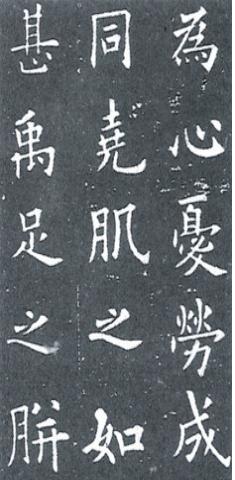 為心憂勞成
同堯肌之如
甚禹足之胼